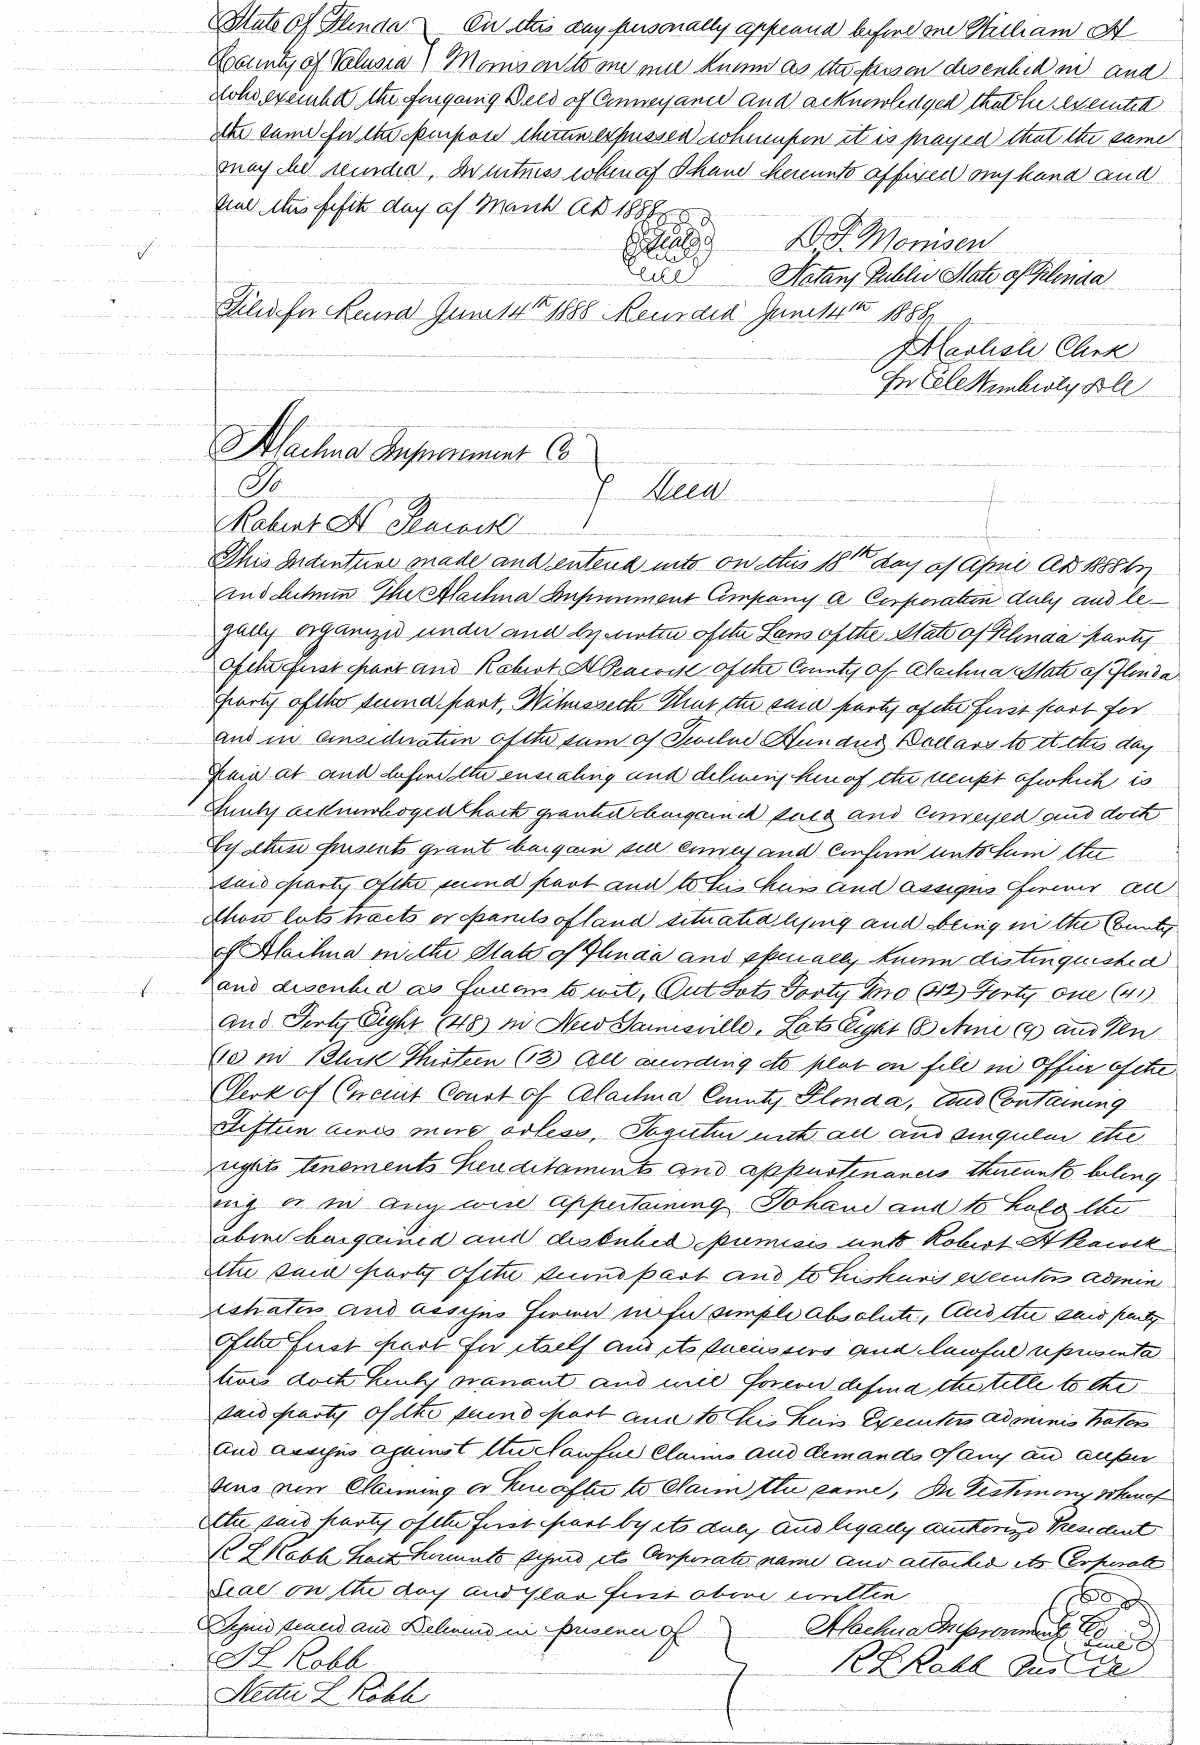 State of Florida } On this day personally appeared before me William A
County of Volusia } Morrison to me well known as the person described in and
who executed the foregoing Deed of Conveyance and acknowledged that he executed
the same for the purpose therein expressed whereupon it is prayed that the same
may be recorded, In witness whereof I have hereunto affixed my hand and
seal this fifth day of March AD 1888
Seal D. F. Morrison
Seal Notary Public State of Florida
Filed for Record June 14th 1888 Recorded June 14th 1888
J A Carlisle Clerk
Per Wimberly D C
Alachua Improvement Co
To } Deed
Robert H Peacock
This Indenture made and entered into on this 18th day of April AD 1888 by
and between The Alachua Improvement Company a Corporation duly and le-
gally organized under and by virtue of the Laws of the State of Florida party
of the first part and Robert H Peacock of the County of Alachua State of Florida
party of the second part, Witnesseth That the said party of the first part for
and in consideration of the sum of Twelve Hundred Dollars to it this day
paid at and before the ensealing and delivery hereof the receipt of which is
hereby acknowledged hath granted bargained sold and conveyed and doth
by these presents grant bargain sell convey and confirm unto him the
said party of the second part and to his heirs and assigns forever all
those lots tracts or parcels of land situated lying and being in the County
of Alachua in the State of Florida and specially known distinguished
and described as follows to wit, Out Lots Forty Two (42) Forty one (41)
and Forty Eight (48) in New Gainesville, Lots Eight (8) Nine (9) and Ten
(10 in Block Thirteen (13) All according to plat on file in Office of the
Clerk of Circuit Court of Alachua County Florida, and Containing
Fifteen acres more or less, Together with all and singular the
rights tenements hereditaments and appurtenances thereunto belong
ing or in any wise appertaining To have and to hold the
above bargained and described premises unto Robert H Peacock
the said party of the second part and to his heirs executors admin
istrators and assigns forever in fee simple absolute, And the said party
of the first part for itself and its successors and lawful representa
tives doth hereby warrant and will forever defend the title to the
said party of the second part and to his heirs Executors administrators
and assigns against the lawful Claims and demands of any an all per
sons now Claiming or hereafter to Claim the same, In Testimony whereof
the said party of the first part by its duly and legally authorized President
R L Robb hath hereunto signed its Corporate name and attached its Corporate
seal on the day and year first above written
Signed sealed and Delivered in presence of } Alachua Improvement Co
S L Robb R L Robb Seal
Nettie L Robb